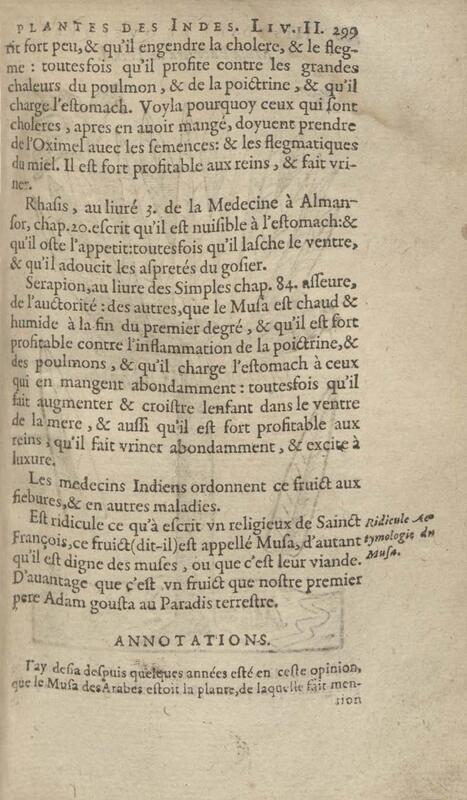 PLANTES DES INDES. LIV. II. 299
rit fort peu, & qu'il engendre la cholere, & le fleg-
me : toutesfois qu'il profite contre les grandes
chaleurs du poulmon, & de la poictrine, & qu'il
charge l'estomach. Voyla pourquoy ceux qui sont
choleres, apres en auoir mangé, doyuent prendre
de l'Oximel auec les semences: & les flegmatiques
du miel. Il est fort profitable aux reins, & fait vri-
ner.
Rhasis, au liuré 3. de la Medecine à Alman-
sor, chap. 20. escrit qu'il est nuisible à l'estomach: &
qu'il oste l'appetit: toutesfois qu'il lasche le ventre,
& qu'il adoucit les aspretés du gosier.
Serapion, au liure des Simples chap. 84. asseure,
de l'auctorité : des autres, que le Musa est chaud &
humide à la fin du premier degré, & qu'il est fort
profitable contre l'inflammation de la poictrine, &
des poulmons, & qu'il charge l'estomach à ceux
qui en mangent abondamment : toutesfois qu'il
fait augmenter & croistre lenfant dans le ventre
de la mere, & aussi qu'il est fort profitable aux
reins, qu'il fait vriner abondamment, & excite à
luxure.
Les medecins Indiens ordonnent ce fruict aux
fiebures, & en autres maladies.
Est ridicule ce qu'à escrit vn religieux de Sainct
François, ce fruict (dit-il) est appellé Musa, d'autant
qu'il est digne des muses, ou que c'est leur viande.
D'auantage que c'est vn fruict que nostre premier
pere Adam gousta au Paradis terrestre.
Ridicule Ae-
tymologie du
Musa.
ANNOTATIONS.
I'ay desia despuis quelques années esté en ceste opinion,
que le Musa des Arabes estoit la plante, de laquelle fait men-
sion